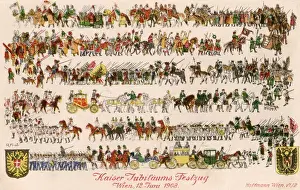 Kaiser Jubiläums Festzug
Wien, 12. Juni 1908.